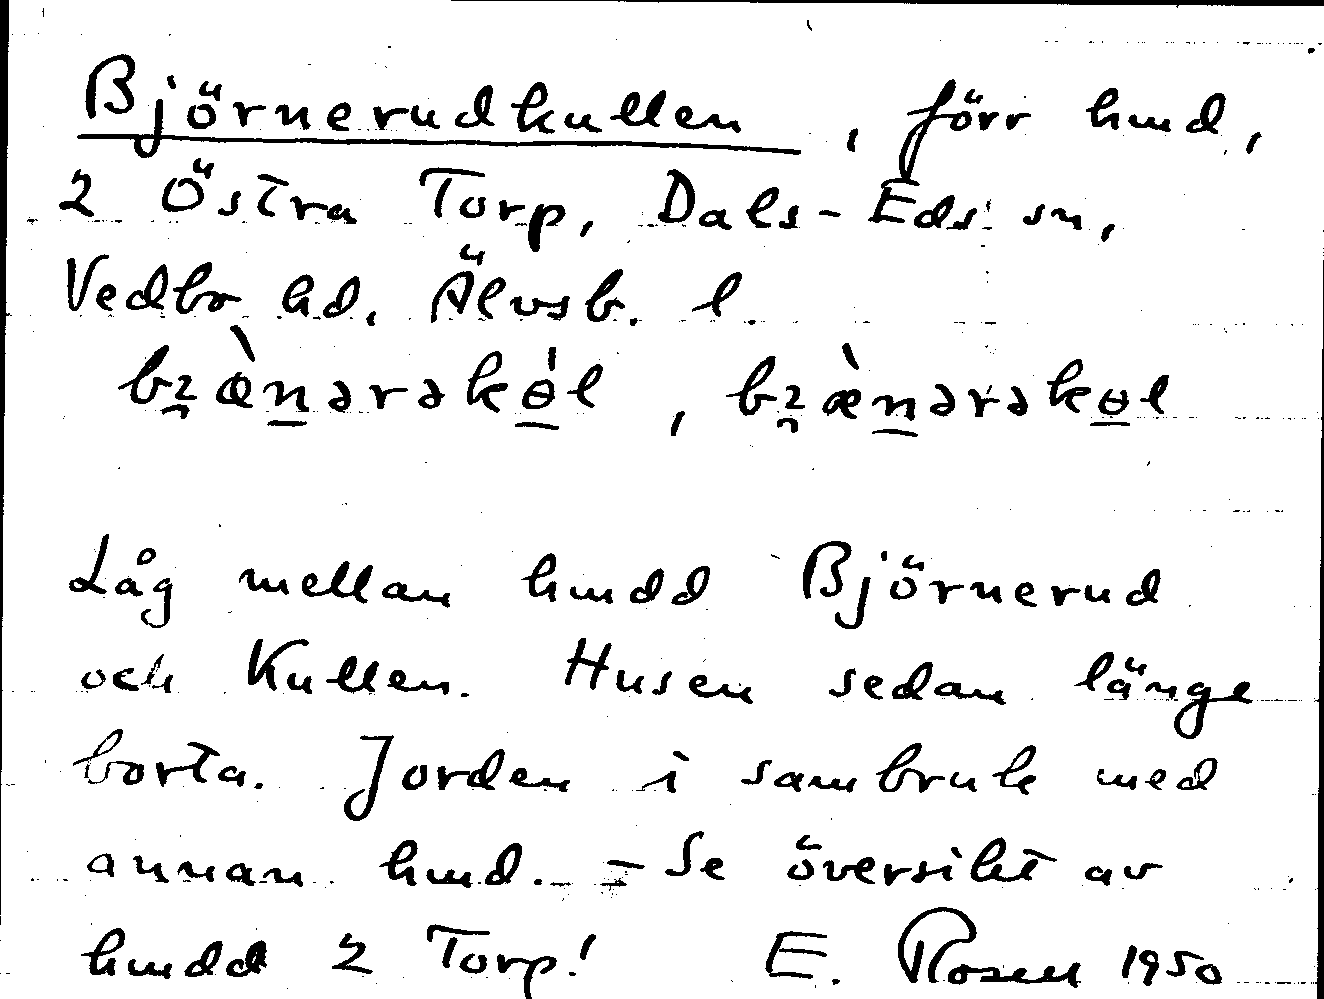 Björnerudkullen, förr hmd,
2 Östra Torp, Dals-Eds sn,
Vedbo hd, Älvsb. l.
Låg mellan hmdd Björnerud
och Kullen. Husen sedan länge
borta. Jorden i sambruk med
annan hmd. - Se översikt av
hmdd 2 Torp! E. Rosell 1950